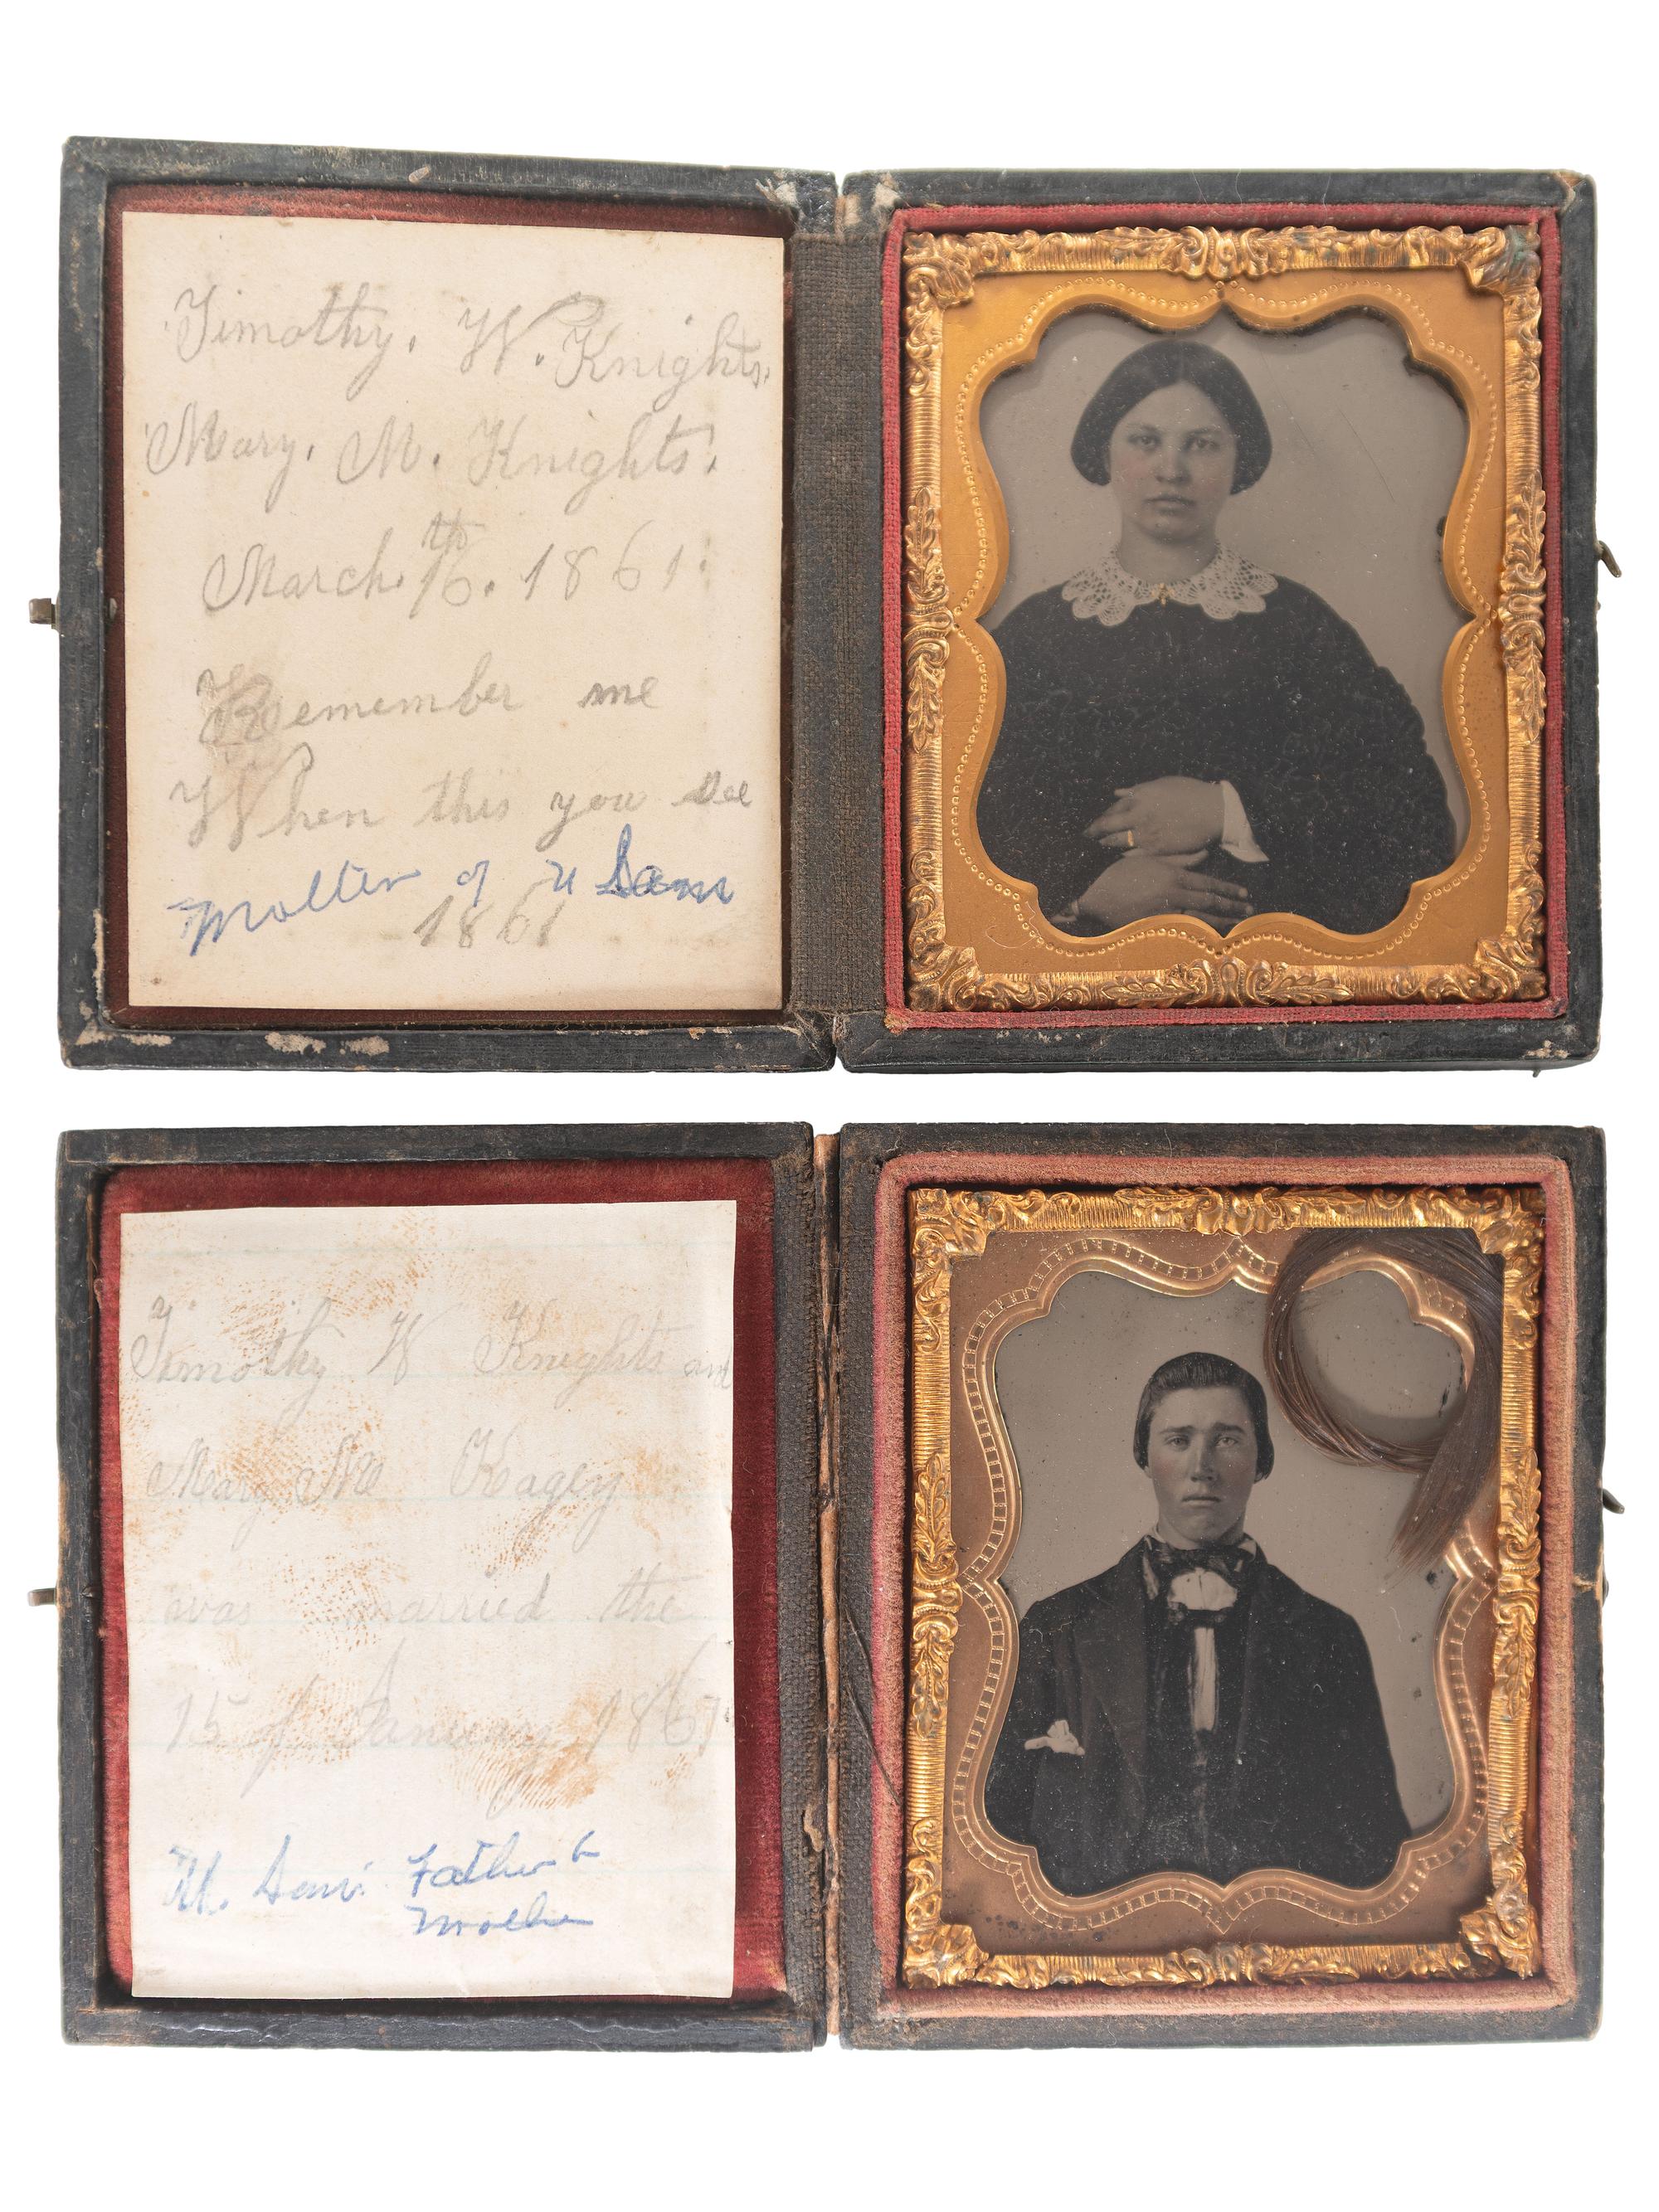 Timothy. W. Knights.
Mary. M. Knights.
March. 16th. 1861.
Remember me
When this you see
Mother of U Sam
1861
Timothy W Knights and
Mary M Kagey
was married the
15 of January 1861
U. Sam's Father &
Mother